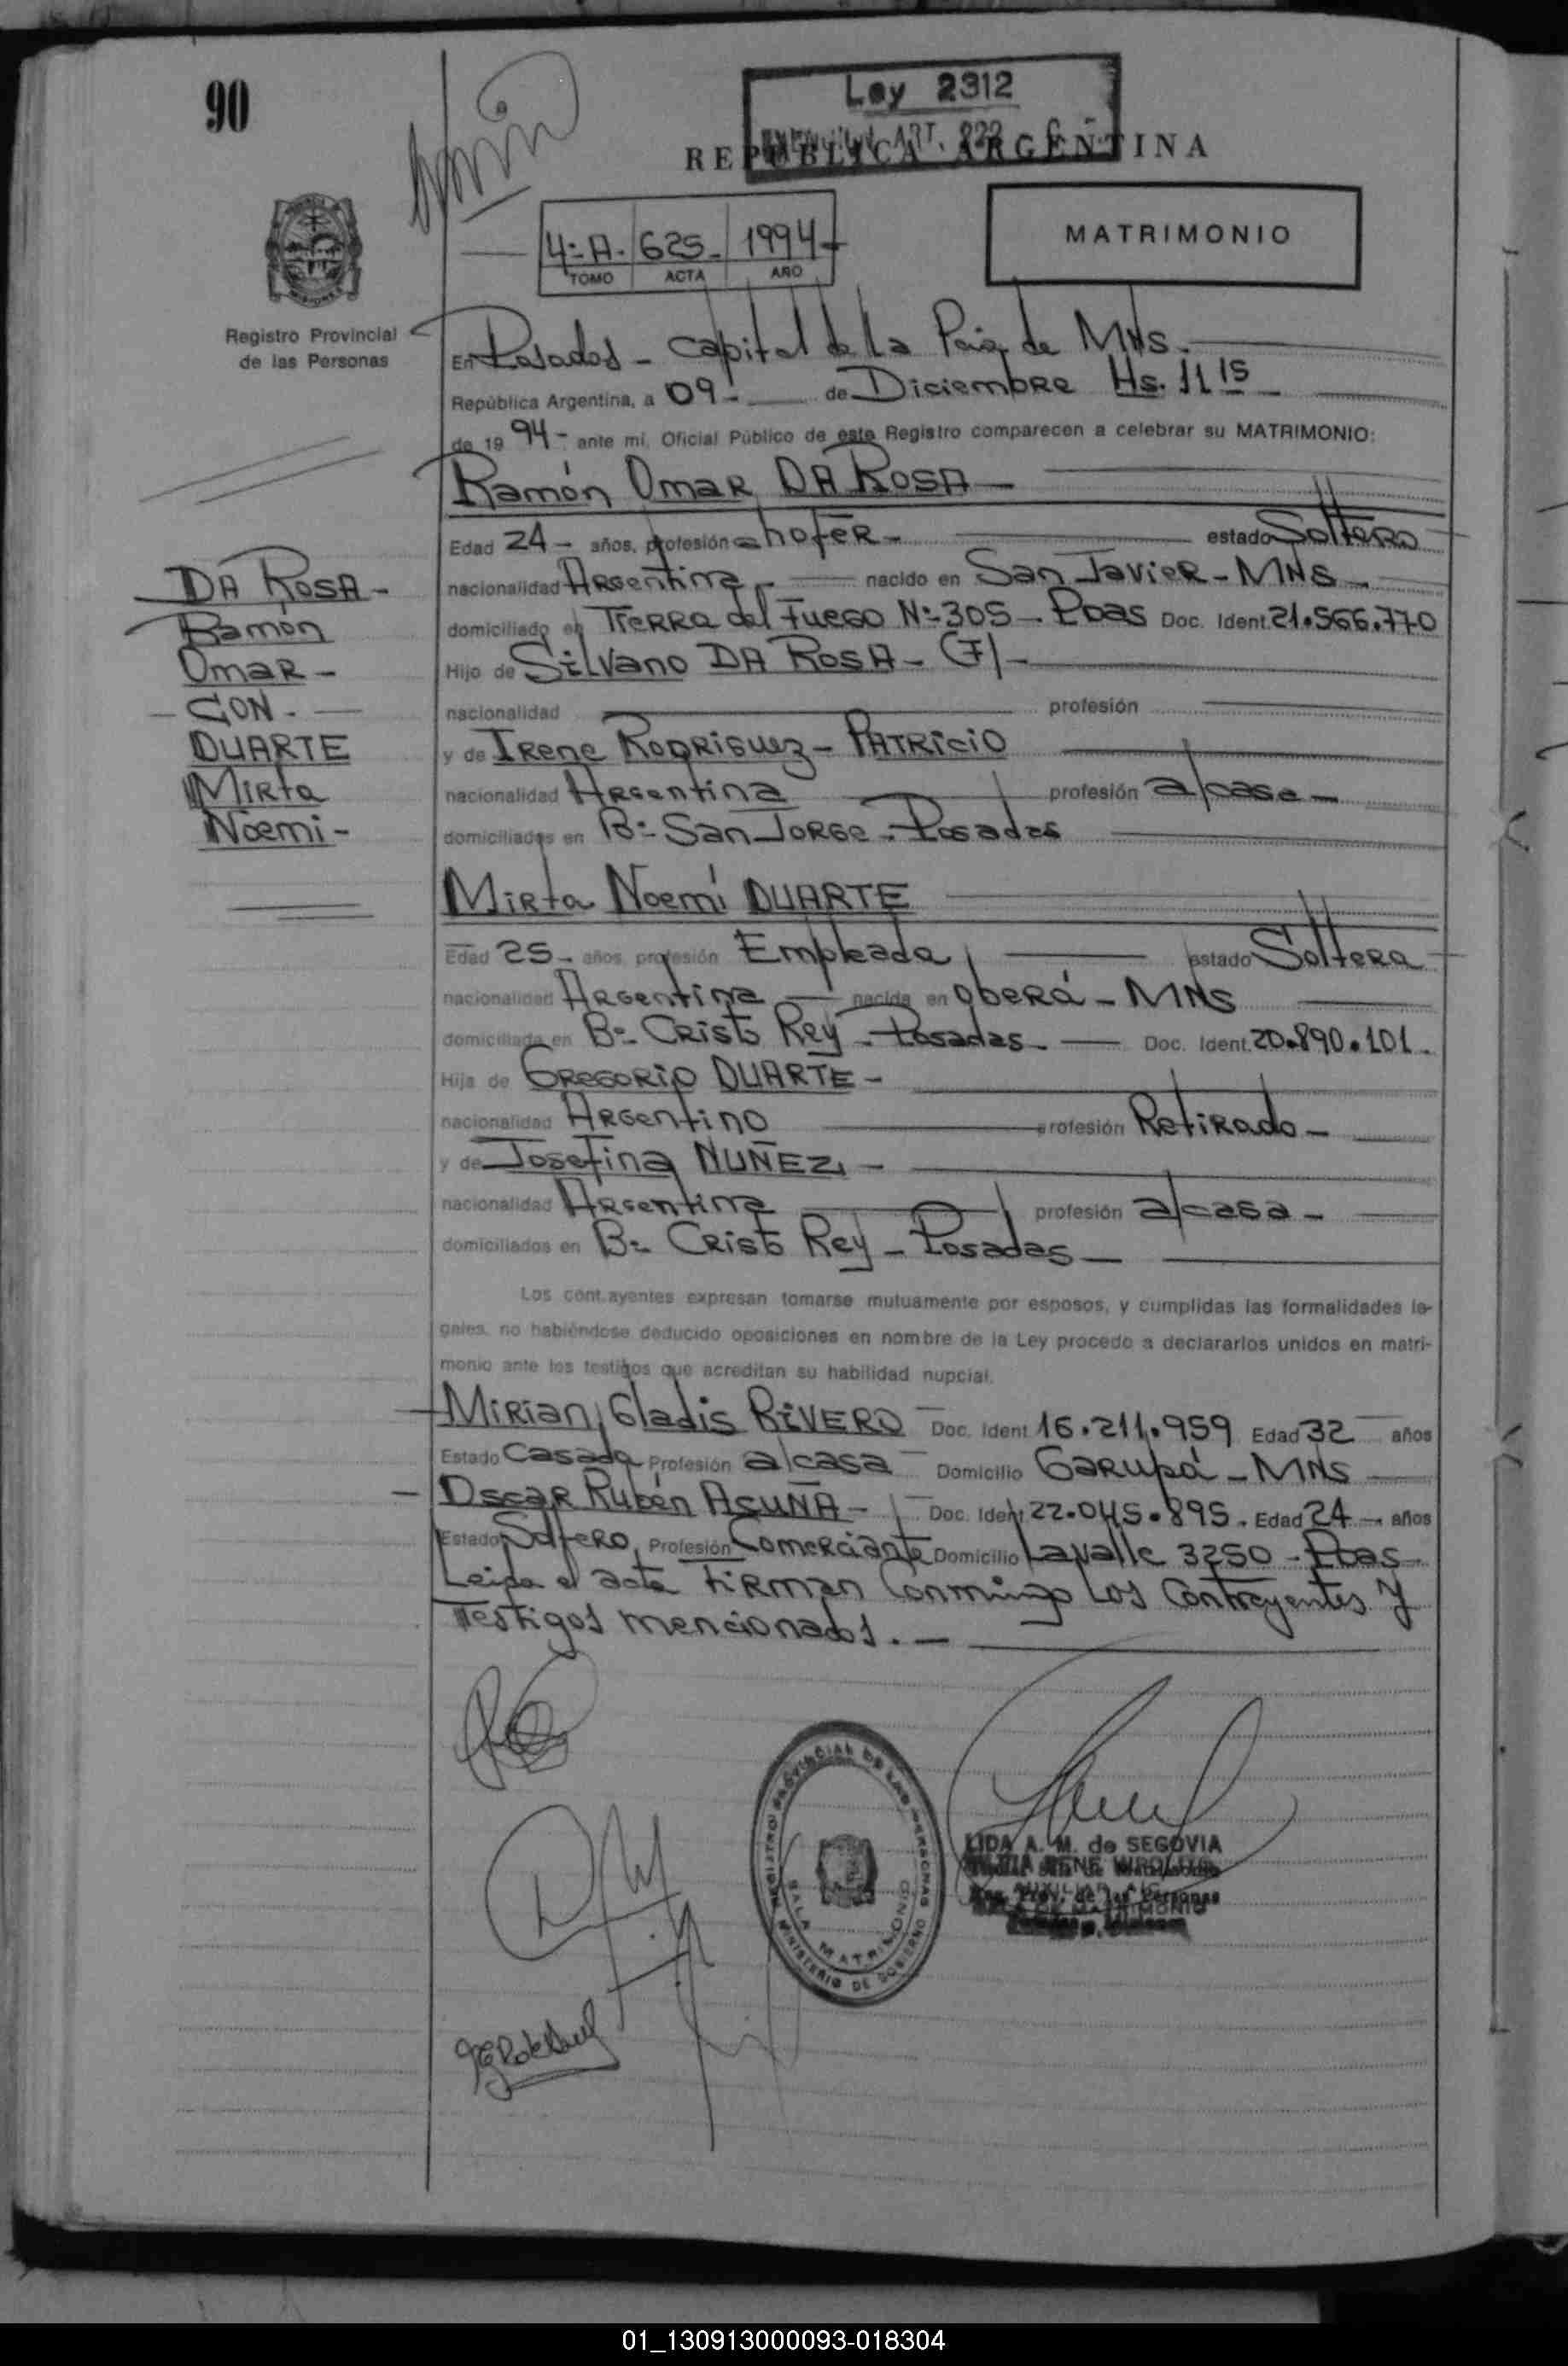 90
Ley 2312
ART. 822
REPUBLICA ARGENTINA
4º A. 625 1994
TOMO ACTA AÑO
MATRIMONIO
Registro Provincial
de las Personas
En Posadas - Capital de la Pcia, de MNS.
República Argentina, a 09 - de Diciembre Hs. 11 15
de 19 94 - ante mí, Oficial Público de este Registro comparecen a celebrar su MATRIMONIO:
Ramón Omar DA ROSA
Edad 24 - años, profesión chofer - estado Soltero
nacionalidad Argentina - nacido en San Javier - MNS -
domiciliado en Tierra del Fuego Nº 305 - Pdas Doc. Ident. 21.566.770
Hijo de Silvano DA ROSA - (F) -
nacionalidad profesión
y de Irene Rodriguez - PATRICIO
nacionalidad Argentina profesión a/casa -
domiciliados en Bº San Jorge - Posadas
DA ROSA -
Ramón
Omar -
- CON -
DUARTE
Mirta
Noemi -
Mirta Noemí DUARTE
Edad 25 - años profesión Empleada estado Soltera
nacionalidad Argentina nacida en Oberá - MNS
domiciliada en Bº Cristo Rey - Posadas - Doc. Ident. 20.890.101.
Hija de Gregorio DUARTE -
nacionalidad Argentino profesión Retirado -
y de Josefina NUÑEZ -
nacionalidad Argentina profesión a/casa -
domiciliados en Bº Cristo Rey - Posadas -
Los contrayentes expresan tomarse mutuamente por esposos, y cumplidas las formalidades le-
gales, no habiéndose deducido oposiciones en nombre de la Ley procedo a declararlos unidos en matri-
monio ante los testigos que acreditan su habilidad nupcial.
Mirian Gladis RIVERO Doc. Ident 16.211.959 Edad 32 años
Estado Casada Profesión a/casa Domicilio Garupá - MNS
Oscar Rubén ACUÑA - Doc. Ident 22.045.895. Edad 24 - años
Estado Soltero, Profesión Comerciante Domicilio Lavalle 3250 - Pdas
Leida el acta Firman Conmingo Los Contrayentes y
Testigos mencionados. -
REGISTRO PROVINCIAL DE LAS PERSONAS
SALA MATRIMONIO
MINISTERIO DE GOBIERNO
LIDA A. M. de SEGOVIA
Reg. Prov. de las Personas
01_130913000093-018304